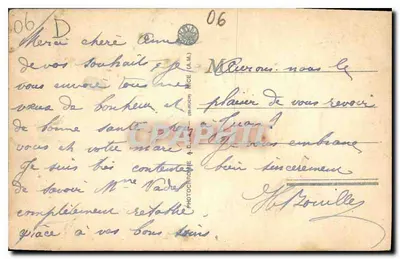 06
D
06
Merci chère
de vos souhaits, je
vous envoie tous mes
vœux de bonheur et
de bonne santé pour
vous et votre mari
Je suis très contente
de savoir Mme
complètement rétablie
grâce à vos bons soins.
Aurons-nous le
plaisir de vous revoir
à Juan ?
Je vous embrasse
bien sincèrement